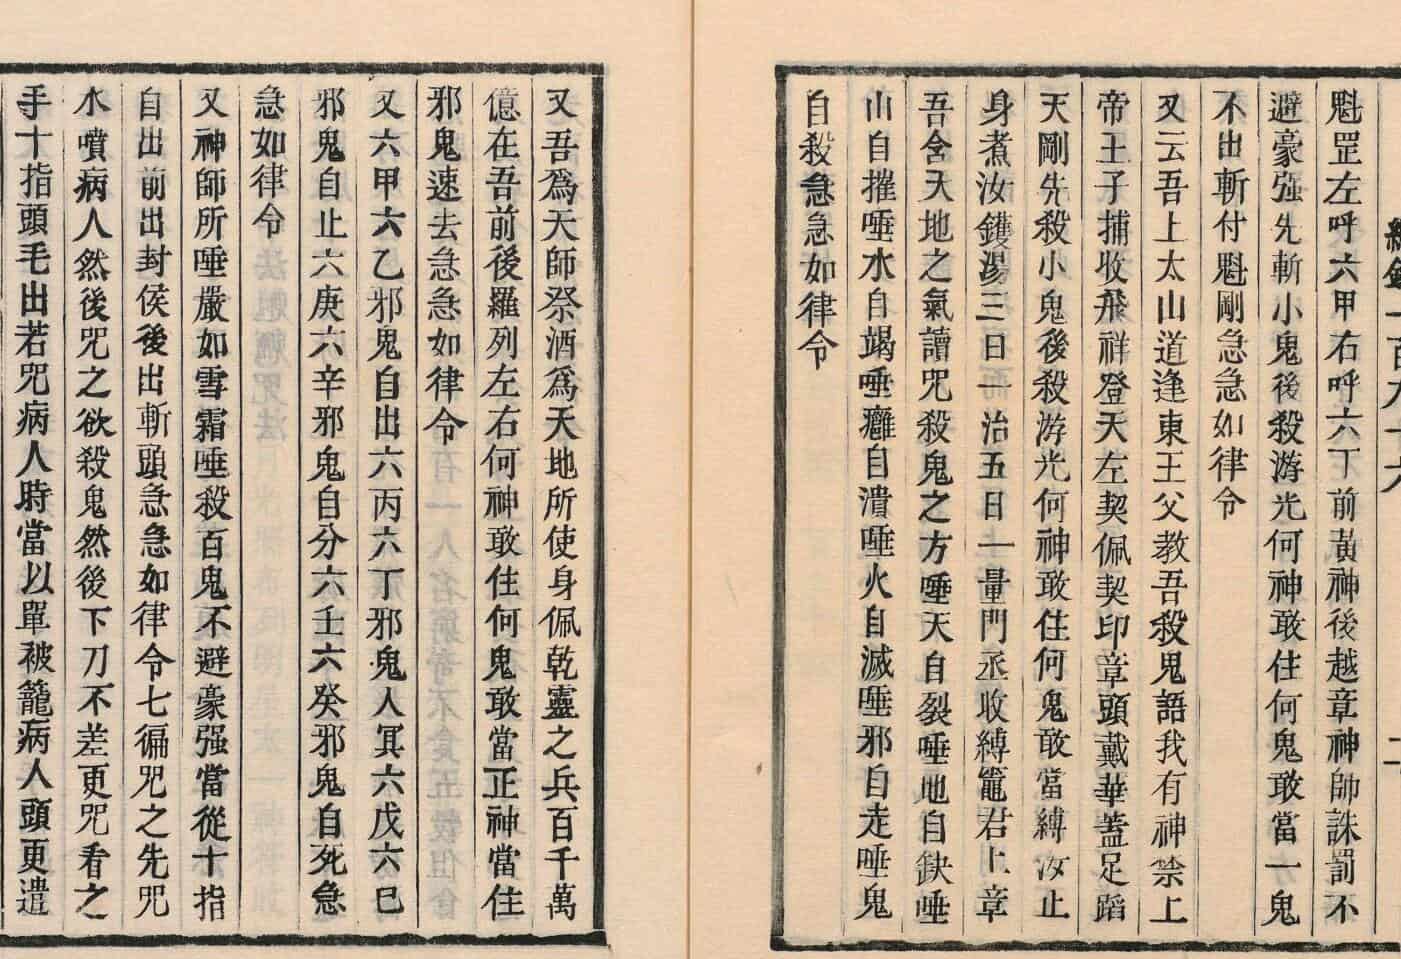 魁罡左呼六甲右呼六丁前黃神後越章神師誅罰不
避豪强先斬小鬼後殺游光何神敢住何鬼敢當一鬼
不出斬付魁剛急急如律令
又云吾上太山道逢東王父教吾殺鬼語我有神禁上
帝王子捕收飛祥登天左契佩契印章頭戴華蓋足蹈
天剛先殺小鬼後殺游光何神敢住何鬼敢當縛汝止
身煮汝鑊湯三日一治五日一量門丞收縛竈君上章
吾含天地之氣讀咒殺鬼之方唾天自裂唾地自缺唾
山自摧唾水自竭唾癰自潰唾火自滅唾邪自走唾鬼
自殺急急如律令
又吾爲天師祭酒爲天地所使身佩乾靈之兵百千萬
億在吾前後羅列左右何神敢住何鬼敢當正神當住
邪鬼速去急急如律令
又六甲六乙邪鬼自出六丙六丁邪鬼人冥六戊六巳
邪鬼自止六庚六辛邪鬼自分六壬六癸邪鬼自死急
急如律令
又神師所唾嚴如雪霜唾殺百鬼不避豪强當從十指
自出前出封侯後出斬頭急急如律令七徧咒之先咒
水噴病人然後咒之欲殺鬼然後下刀不差更咒看之
手十指頭毛出若咒病人時當以單被籠病人頭更遣